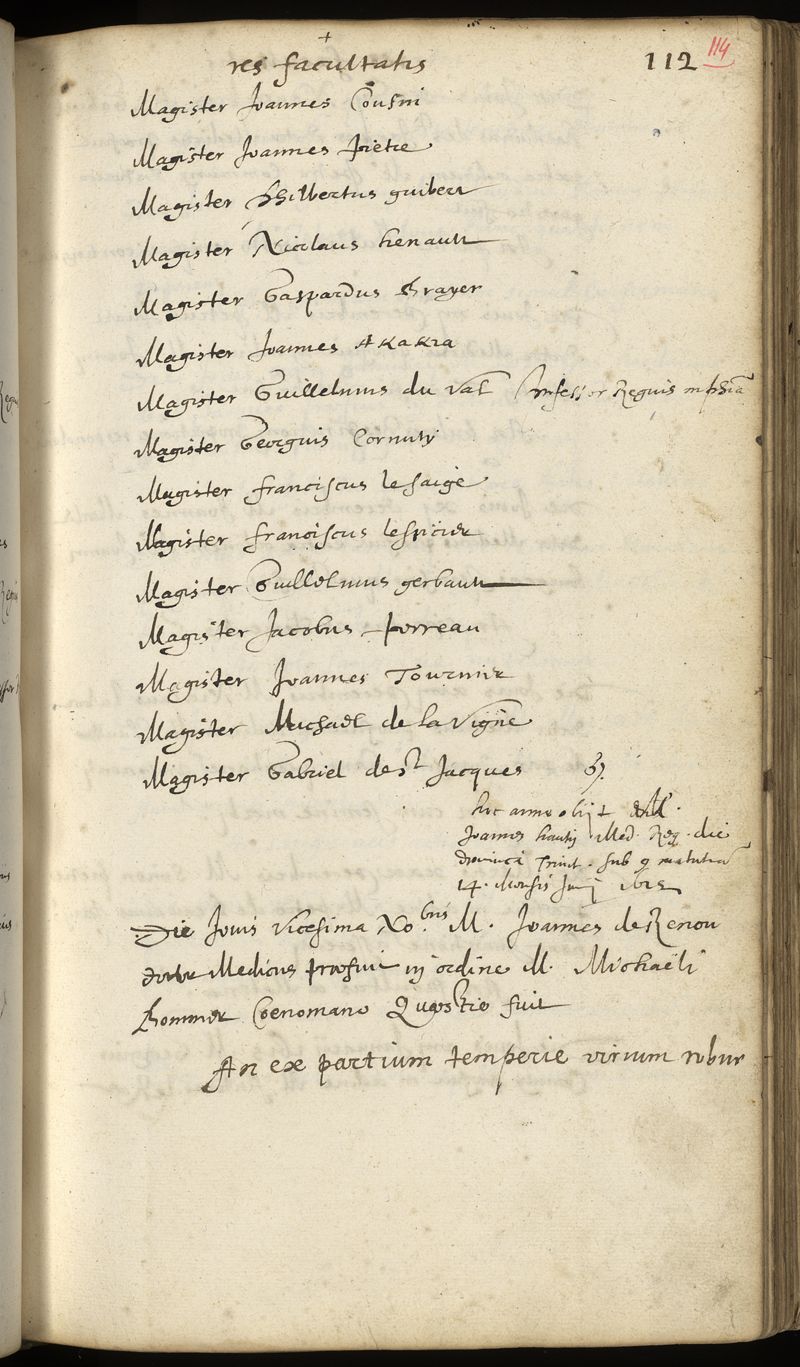 res facultatis 112 114
Magister Joannes Cousin
Magister Joannes pietre
Magister Philbertus guibert
Magister Nicolaus henault
Magister Gaspardus Brayer
Magister Joannes Akakia
Magister Guillelmus du val professor Regius in phia
Magister Georgius Cornuty
Magister franciscus lesaige
Magister franciscus lespicier
Magister Guillelmus gerbault
Magister Jacobus perreau
Magister Joannes Tournier
Magister Michael de la vigne
Magister Gabriel de St Jacques
hoc anno obijt
Joannes hautin Med. Reg. die
dominica sub matutina
14. Mensis Junij
Die Jovis vicesima No.bris M. Joannes de Renou
doctor Medicus praefuit in ordine M. Michaeli
Coenomano Quaestio fuit
An ex partium temperie virium robur